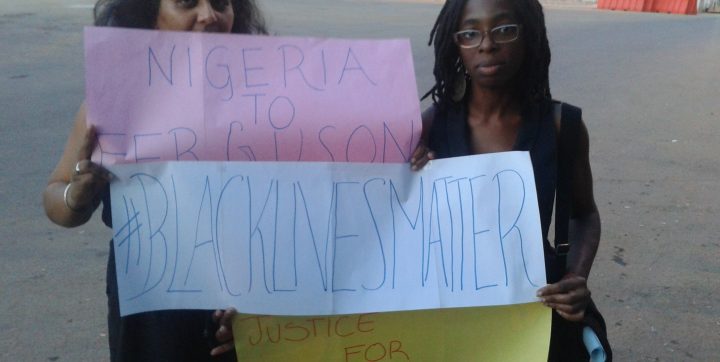 NIGERIA
TO
FERGUSON
#BLACKLIVESMATTER
JUSTICE
FOR